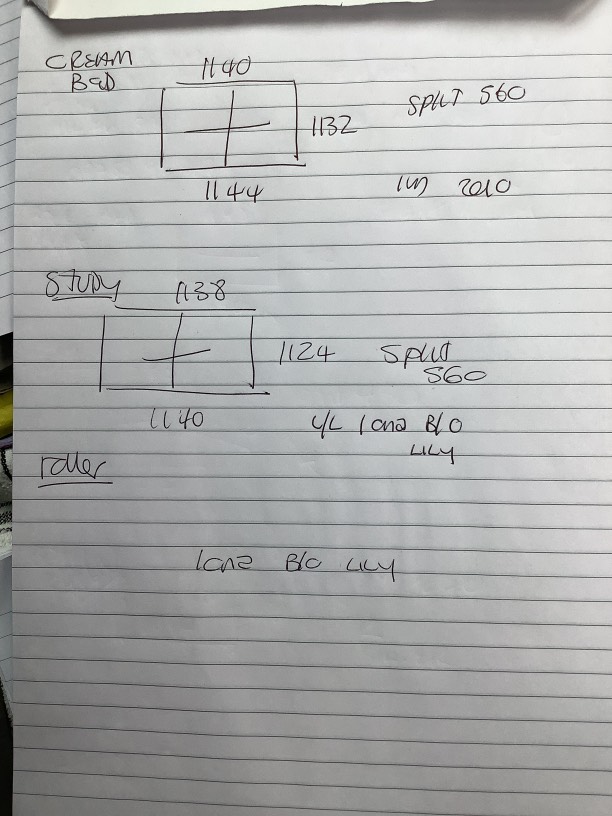 CREAM
BED
1140
SPLIT 560
1132
1144
2010
STUDY
1138
1124
SPLIT
560
1140
B/O
LILY
roller
B/O LILY